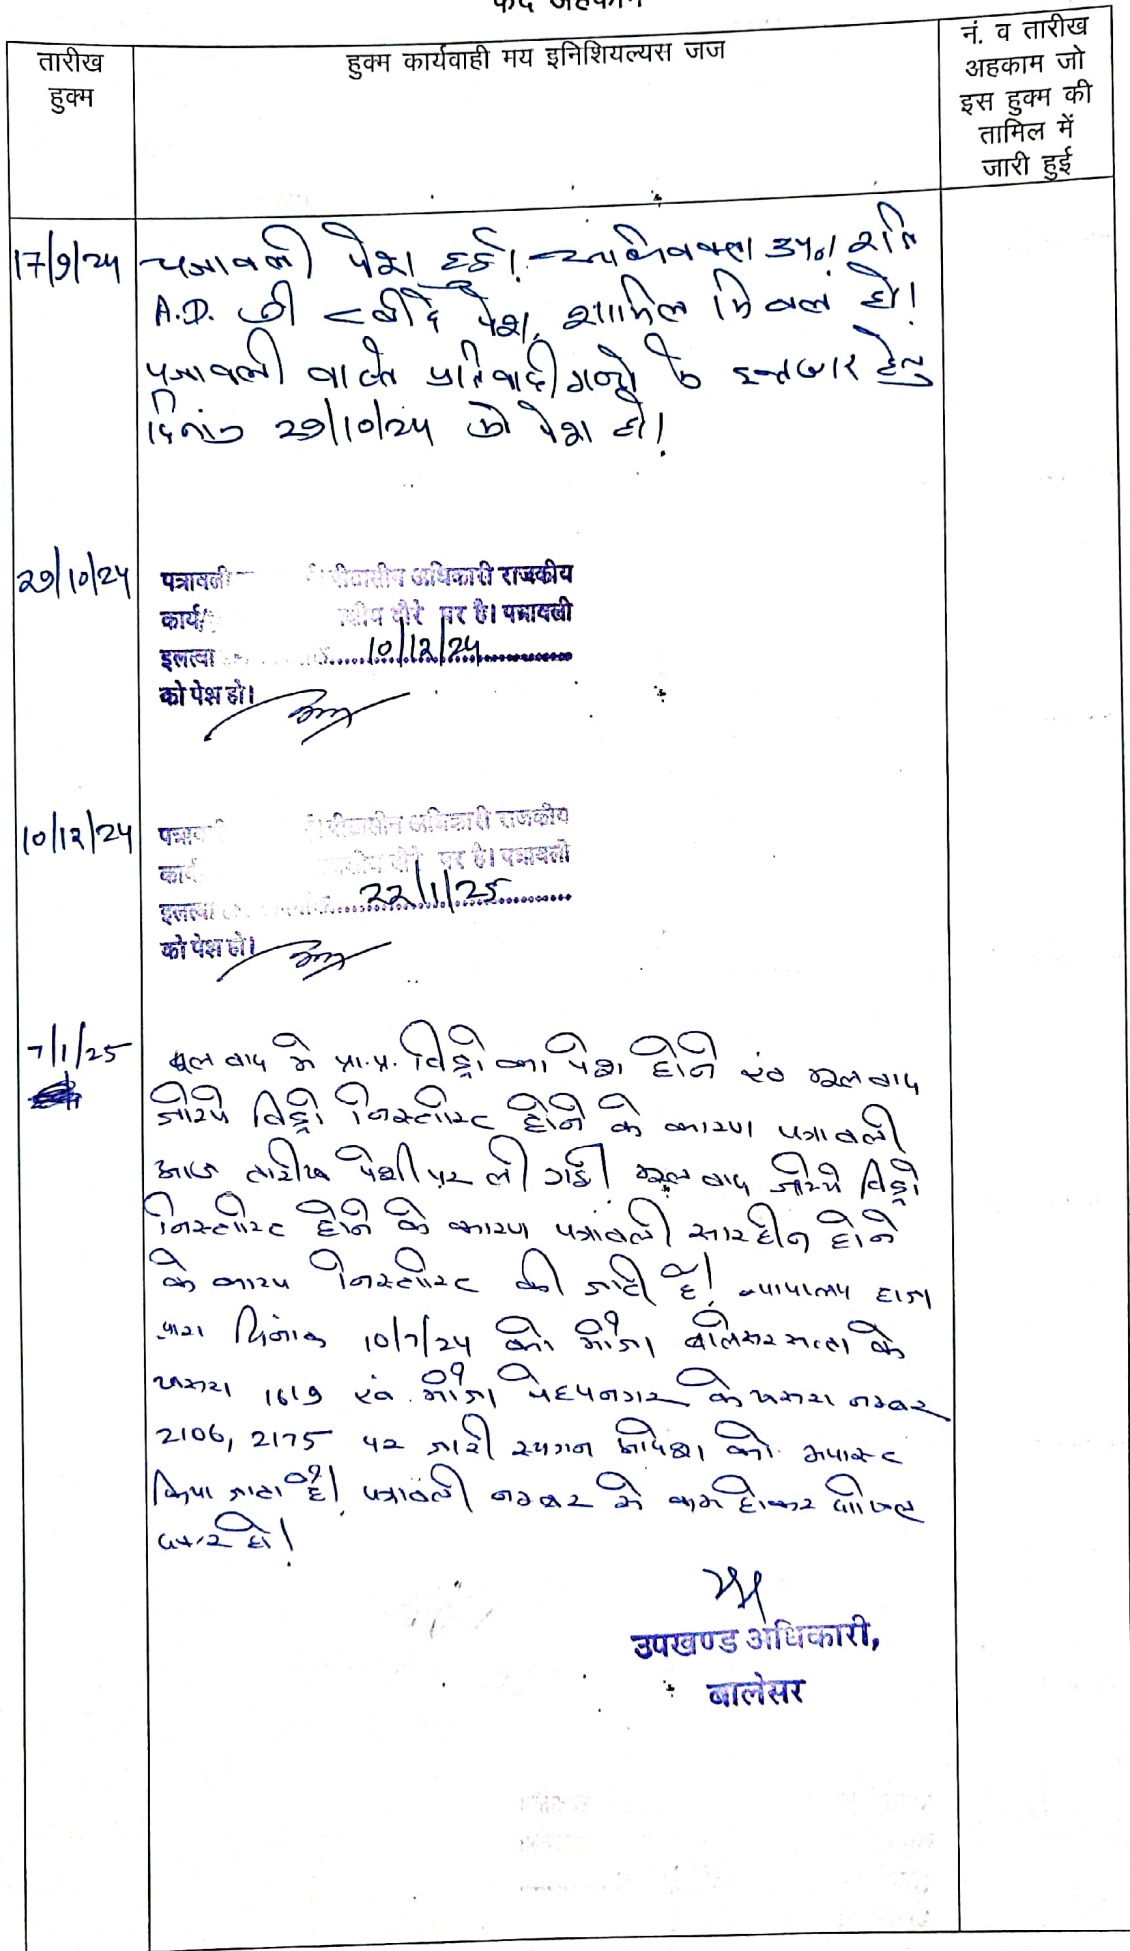 फर्द अहकाम
तारीख
हुक्म
हुक्म कार्यवाही मय इनिशियल्यस जज
नं. व तारीख
अहकाम जो
इस हुक्म की
तामिल में
जारी हुई
17/9/24 पत्रावली पेश हुई। अधिवक्ता उप०।
A.D. की रसीदे पेश, शामिल मिसल हो।
पत्रावली वास्ते प्रतिवादीगणो के इन्तजार हेतु
दिनांक 29/10/24 को पेश हो।
29/10/24 पत्रावली पीठासीन अधिकारी राजकीय
कार्य दौरे पर है। पत्रावली
इलत्वा 10/12/24
को पेश हो।
10/12/24 पत्राव पीठासीन अधिकारी राजकीय
कार्य दौरे पर है। पत्रावली
इलत्वा 22/1/25
को पेश हो।
7/1/25 मूल वाद मे प्रा.प्र. विड्रो का पेश होने एंव मूल वाद
जरिये विड्रो निस्तारित होने के कारण पत्रावली
आज तारीख पेशी पर ली गई। मूल वाद जरिये विड्रो
निस्तारित होने के कारण पत्रावली सारहीन होने
के कारण निस्तारित की जाती है। न्यायालय हाजा
द्वारा दिनांक 10/7/24 को मौजा बालेसर सत्ता के
खसरा 1619 एंव मौजा के खसरा नम्बर
2106, 2175 पर जारी स्थगन आदेश को अपास्त
किया जाता है। पत्रावली नम्बर से कम होकर दाखिल
दफ्तर हो।
उपखण्ड अधिकारी,
बालेसर